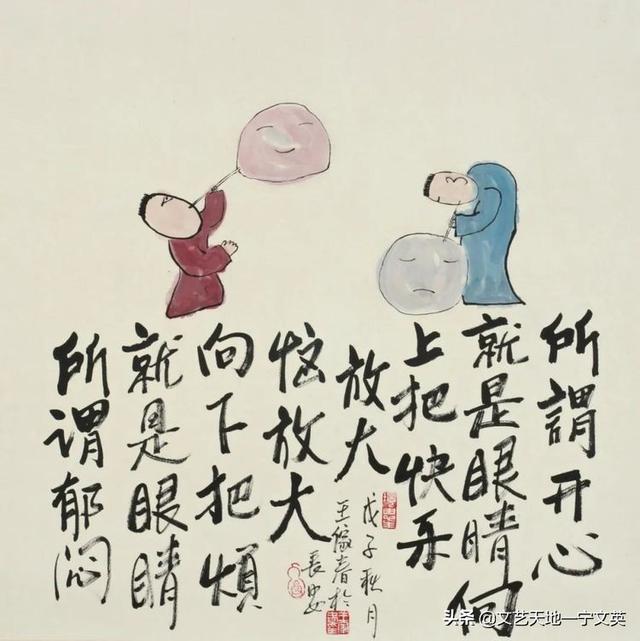 所謂开心
就是眼睛向
上把快乐
放大
所谓郁闷
就是眼睛
向下把煩
恼放大
戊子秋月
王春於
長安
头条 @文艺天地—宁文英